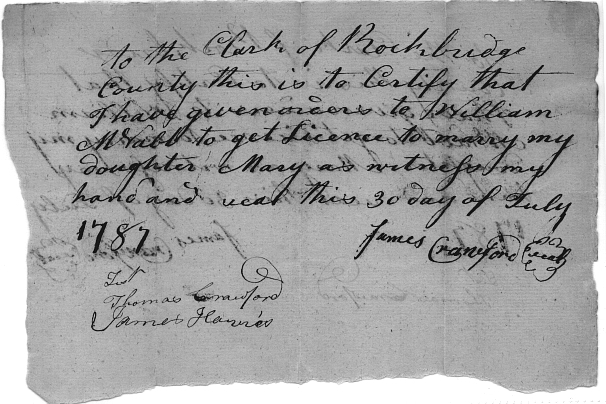 to the Clark of Rockbridge
County this is to Certify that
I have given orders to William
McNabb to get Licence to marry my
daughter Mary as witness my
hand and seal this 30 day of July
1787
James Crawford seal
Test
Thomas Crawford
James